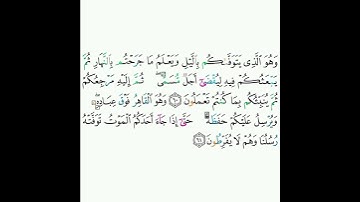 وَهُوَ ٱلَّذِى يَتَوَفَّىٰكُم بِٱلَّيْلِ وَيَعْلَمُ مَا جَرَحْتُم بِٱلنَّهَارِ ثُمَّ
يَبْعَثُكُمْ فِيهِ لِيُقْضَىٰٓ أَجَلٌ مُّسَمًّى ۖ ثُمَّ إِلَيْهِ مَرْجِعُكُمْ
ثُمَّ يُنَبِّئُكُم بِمَا كُنتُمْ تَعْمَلُونَ ٦٠ وَهُوَ ٱلْقَاهِرُ فَوْقَ عِبَادِهِۦ ۖ
وَيُرْسِلُ عَلَيْكُمْ حَفَظَةً حَتَّىٰٓ إِذَا جَآءَ أَحَدَكُمُ ٱلْمَوْتُ تَوَفَّتْهُ
رُسُلُنَا وَهُمْ لَا يُفَرِّطُونَ ٦١